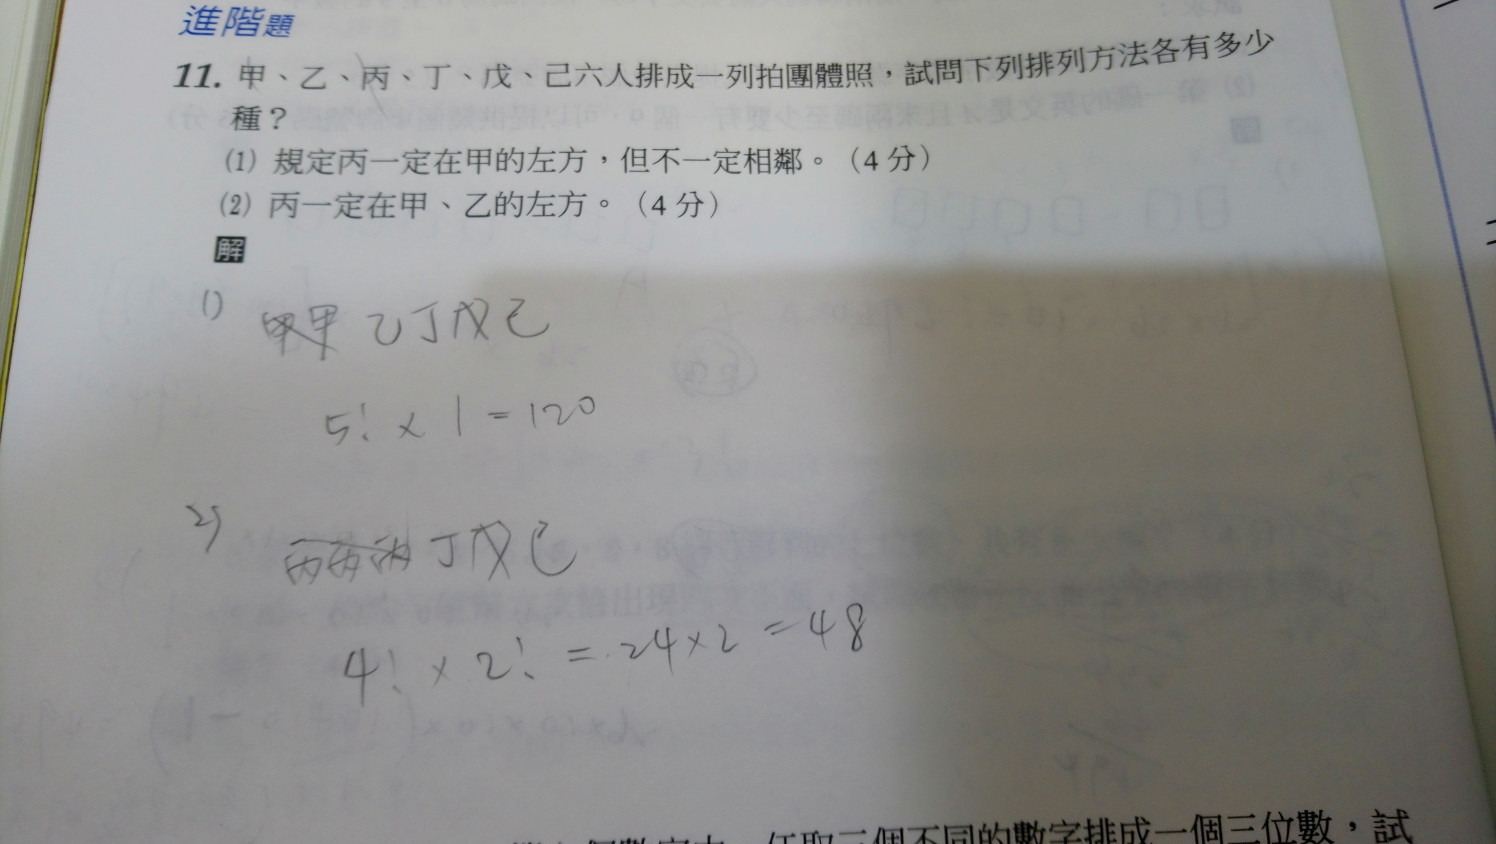 進階題
11. 甲、乙、丙、丁、戊、己六人排成一列拍團體照，試問下列排列方法各有多少
種？
(1) 規定丙一定在甲的左方，但不一定相鄰。（4 分）
(2) 丙一定在甲、乙的左方。（4 分）
解
1) 甲 乙丁戊己
5! × 1 = 120
2) 丁戊己
4! × 2! = 24×2 = 48
個數字中，任取三個不同的數字排成一個三位數，試